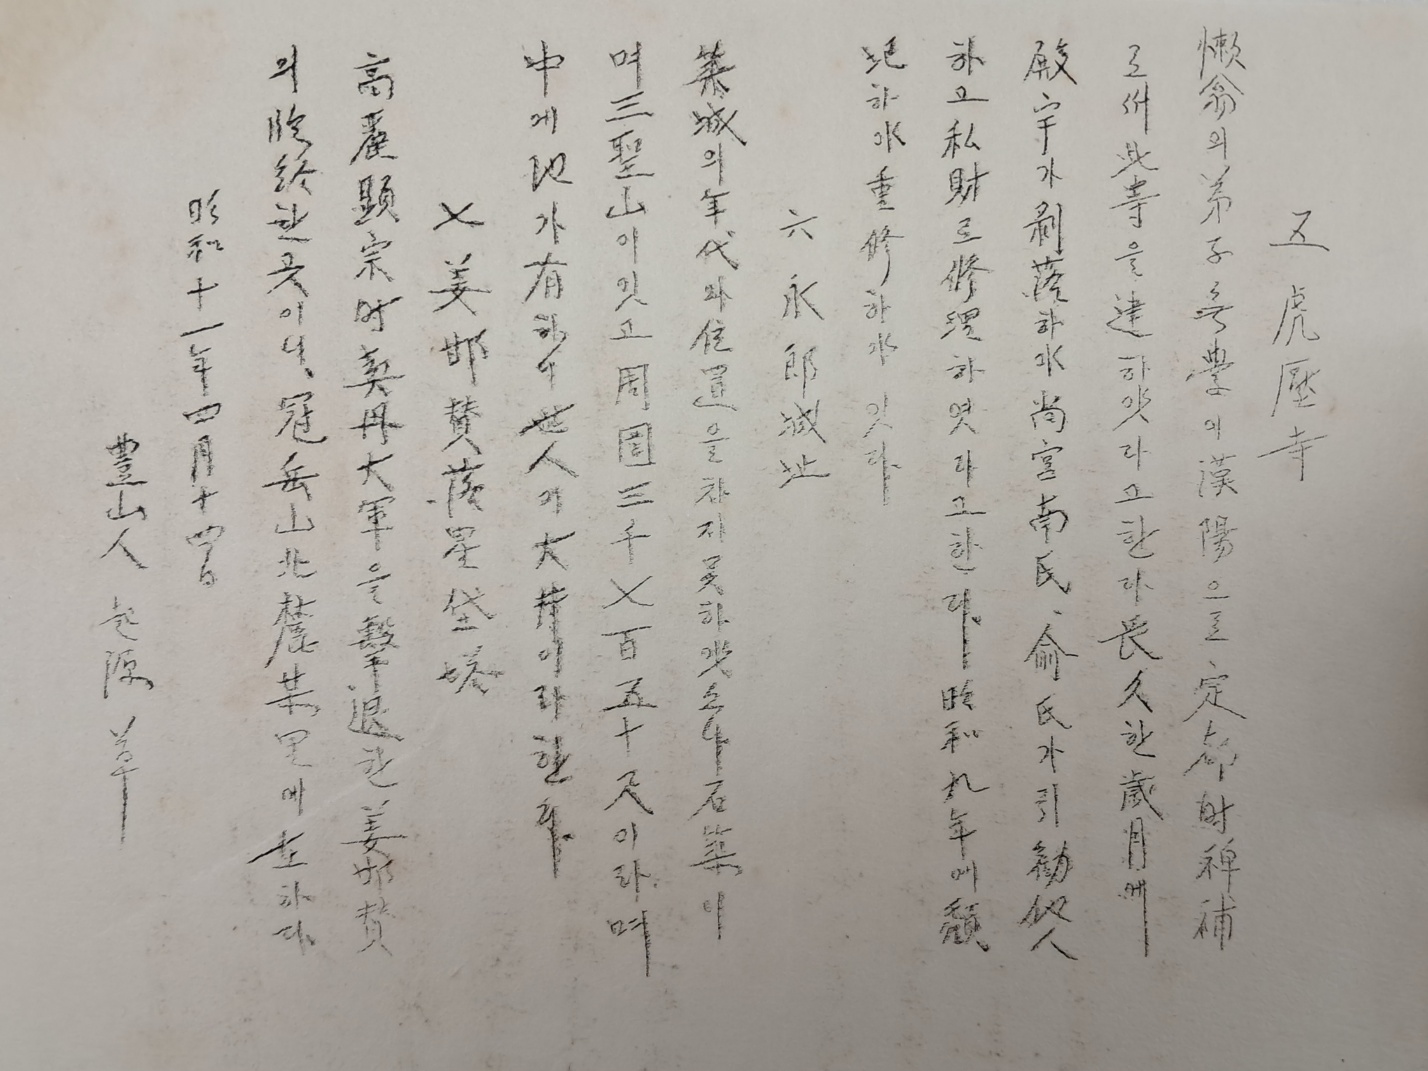 五 虎壓寺
懶翁의 弟子 無學이 漢陽으로 定都時 裨補
로써 此寺을 建하얏다고 한다 長久한 歲月에
殿宇가 剝落하야 尙宮南氏、俞氏가 引勸他人
하고 私財로 修理하엿다고 한다、昭和九年에 頹
圮하야 重修하야 잇다
六 永郎城址
築城의 年代와 位置을 차지못하얏스나 石築이
며 三聖山이잇고 周圍 三千七百五十尺이라며
中에 池가 有하야 世人이 大井이라 한다
七 姜邯賛落星垈塔
高麗 顯宗 時 契丹大軍을 擊退한 姜邯賛
의 臨終한 곳이니、冠岳山 北麓 某里에 在하다
昭和十一年四月十四日
豊山人 起源 草